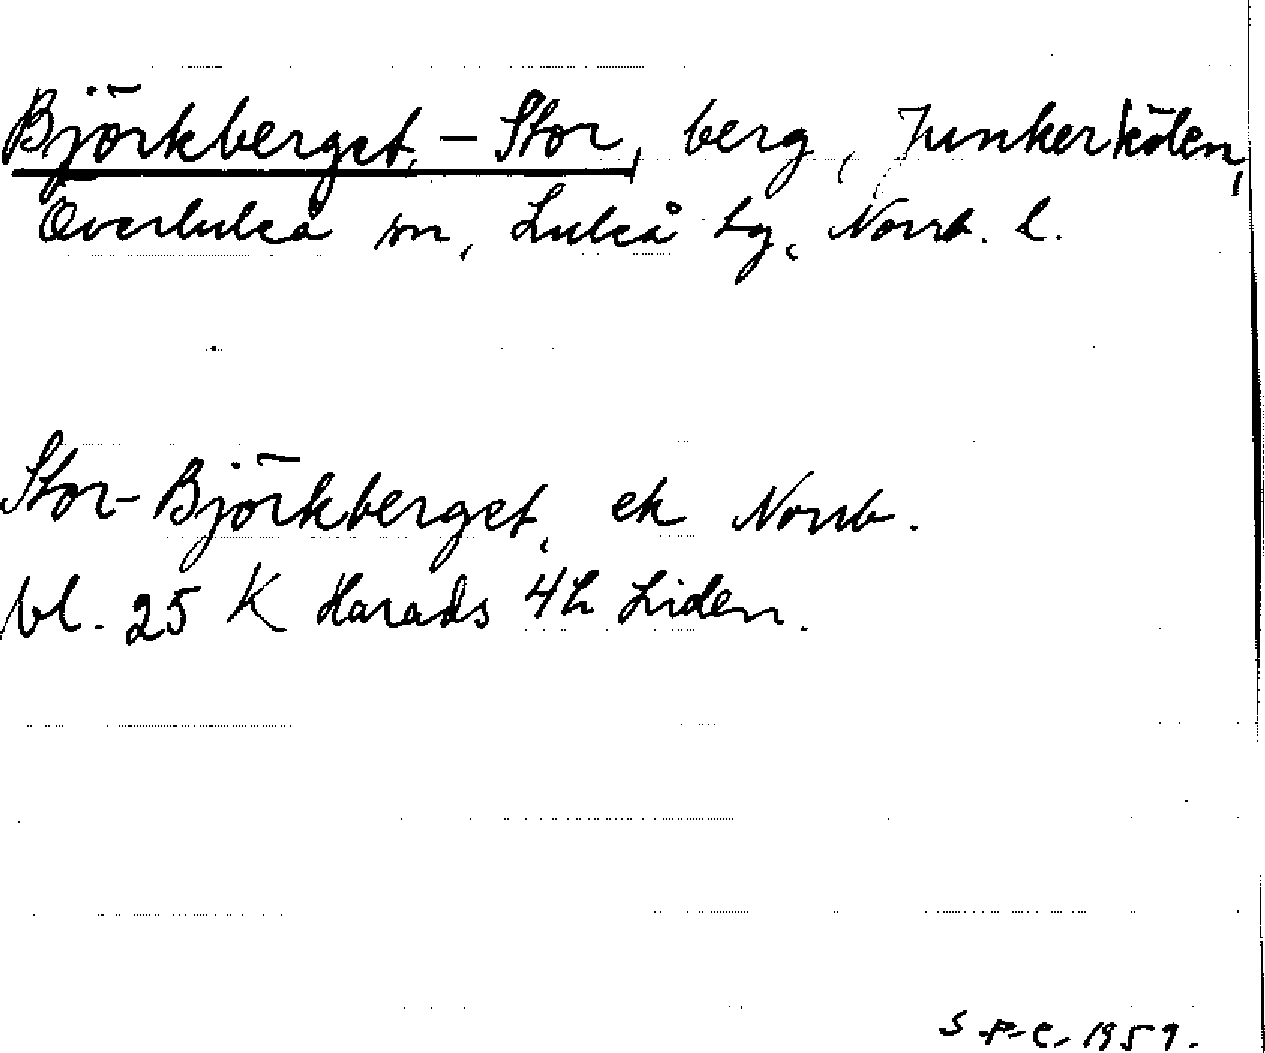 Björkberget, - Stor, berg, Junkerkölen,
Överluleå sn, Luleå tg, Norrb. l.
Stor-Björkberget, ek Norrb.
bl. 25 K Harads 4h Liden.
S.P.C. 1959.